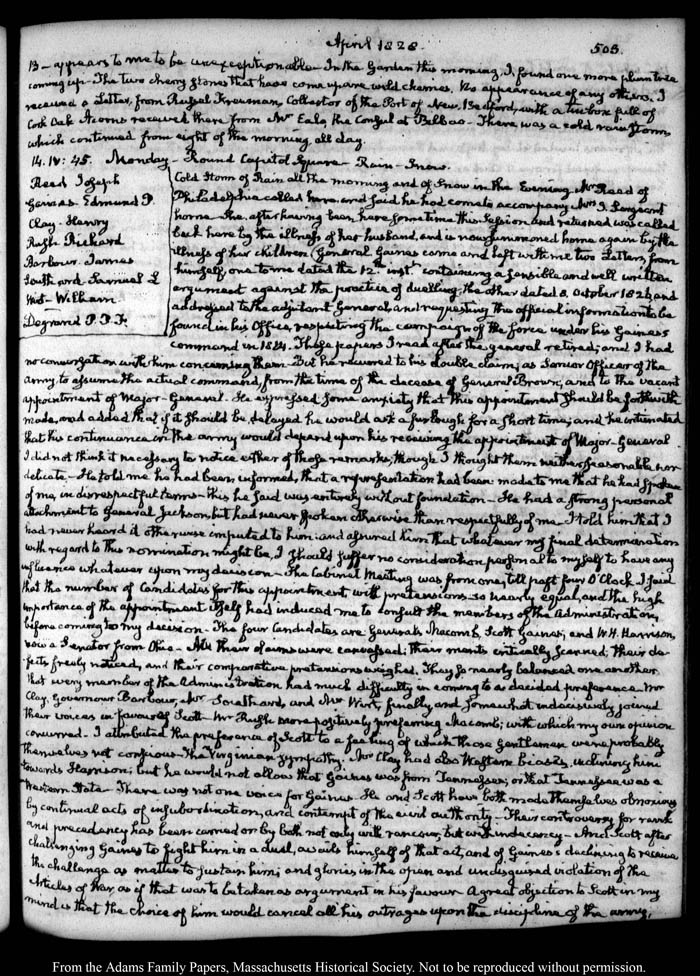 April 1828.
505.
13 – appears to me to be unexceptionable – In the Garden this morning, I found one more plum tree
coming up – The two cherry stones that have come up are wild cherries. No appearance of any others. I
received a Letter, from Russel Freeman, Collector of the Port of New Bedford, with a tin box full of
Cork Oak Acorns received there from Mr Eala the Consul at Bilbao – There was a cold raw storm
which continued from eight of the morning all day.
14. IV: 45. Monday – Round Capitol Square – Rain – Snow.
Read Joseph
Gaines Edmund P.
Clay Henry
Rush Richard
Barbour James
Southard Samuel L
Wirt William
Degrand P. P. F.
Cold storm of Rain all the morning and of Snow in the Evening. Mr Read of
Philadelphia called here and said he had come to accompany Mrs J. Sergeant
home – She, after having been here sometime this Session and returned was called
back here by the illness of her husband, and is now summoned home again by the
illness of her children. General Gaines came and left with me two Letters, from
himself, one to me dated the 12th inst containing a sensible and well written
argument against the practice of duelling, the other dated 8. October 1825 and
addressed to the adjutant General, and requesting the official information to be
found in his Office, respecting the campaign of the force under his Gaines's
command in 1814. These papers I read after the general retired; and I had
no conversation with him concerning them – But he recurred to his double claim, as Senior Officer of the
army, to assume the actual command, from the time of the decease of General Brown, and to the vacant
appointment of Major-General. He expressed some anxiety that this appointment should be forthwith
made, and added that if it should be delayed he would ask a furlough for a short time; and he intimated
that his continuance in the army would depend upon his receiving the appointment of Major-General.
I did not think it necessary to notice either of those remarks, though I thought them neither seasonable nor
delicate. – He told me he had been informed, that a representation had been made to me that he had spoken
of me, in disrespectful terms – this he said was entirely without foundation – He had a strong personal
attachment to General Jackson, but had never spoken otherwise than respectfully of me. I told him that I
had never heard it otherwise imputed to him: and assured him that whatever my final determination
with regard to this nomination might be, I should suffer no consideration personal to myself to have any
influence whatever upon my decision – The Cabinet Meeting was from one, till past four O'Clock. I said
that the number of Candidates for this appointment with pretensions so nearly equal, and the high
importance of the appointment itself had induced me to consult the members of the Administration,
before coming to my decision – The four Candidates are Generals Macomb, Scott, Gaines, and W. H. Harrison,
now a Senator from Ohio – All their claims were canvassed; their merits critically scanned; their de-
fects freely noticed, and their comparative pretensions weighed. They so nearly balanced one another
that every member of the Administration had much difficulty in coming to a decided preference. Mr
Clay, Governour Barbour, Mr Southard, and Mr Wirt, finally and somewhat indecisively joined
their voices in favour of Scott – Mr Rush more positively preferring Macomb; with which my own opinion
concurred. I attributed the preference of Scott to a feeling of which those Gentlemen were probably
themselves not conscious – The Virginian sympathy. Mr Clay had also Western biases, inclining him
towards Harrison; but he would not allow that Gaines was from Tennessee; or that Tennessee was a
Western State – There was not one voice for Gaines – He and Scott have both made themselves obnoxious
by continual acts of insubordination, and contempt of the civil authority – Their controversy for rank
and precedency has been carried on by both not only with rancour, but with indecency – And Scott after
challenging Gaines to fight him in a duel, avails himself of that act, and of Gaines's declining to receive
the challenge as matter to sustain him; and glories in the open and undisguised violation of the
Articles of War, as if that was to be taken as argument in his favour. A great objection to Scott in my
mind is that the choice of him would cancel all his outrages upon the discipline of the army,
From the Adams Family Papers, Massachusetts Historical Society. Not to be reproduced without permission.